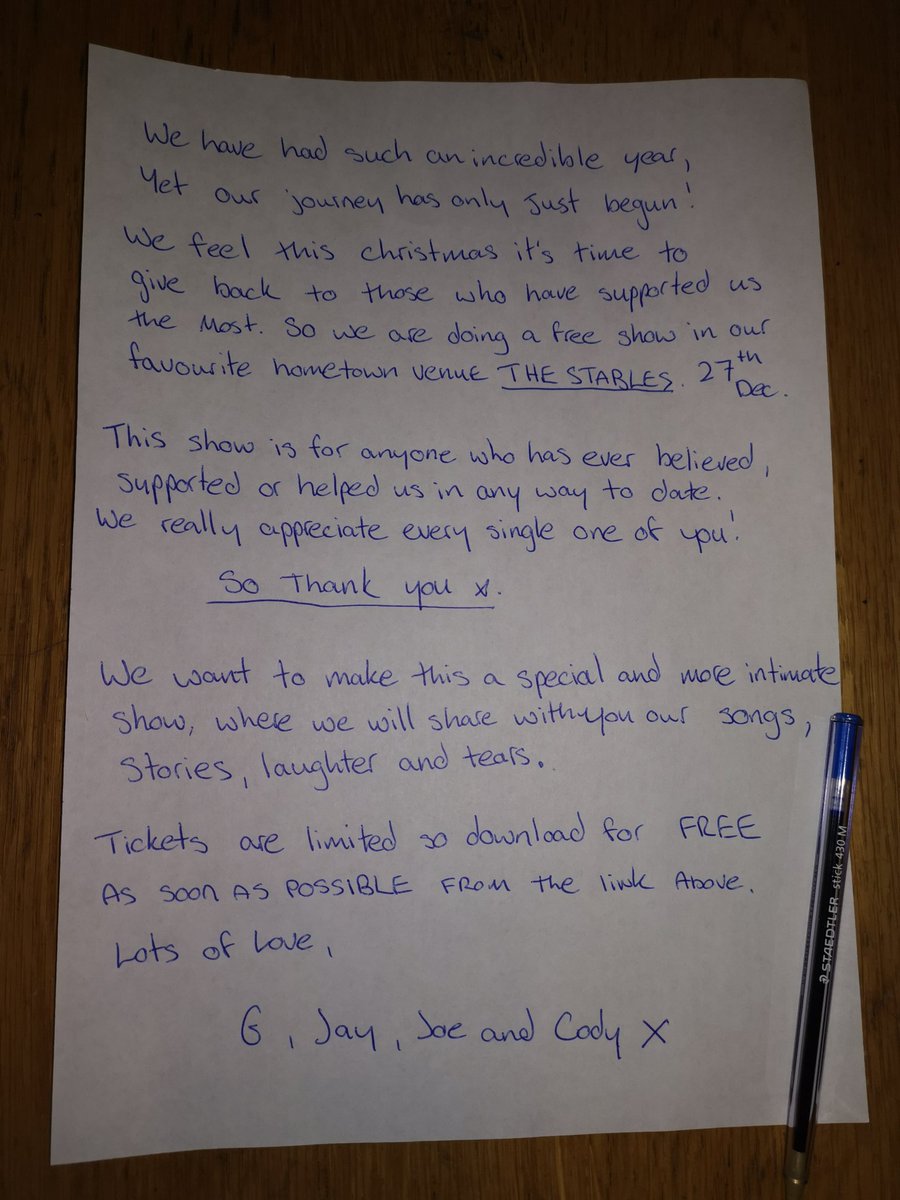 We have had such an incredible year,
Yet our journey has only just begun!
We feel this christmas it's time to
give back to those who have supported us
the Most. So we are doing a free show in our
favourite hometown venue THE STABLES. 27th Dec.
This show is for anyone who has ever believed,
supported or helped us in any way to date.
We really appreciate every single one of you!
So Thank you x.
We want to make this a special and more intimate
show, where we will share with you our songs,
stories, laughter and tears.
Tickets are limited so download for FREE
AS SOON AS POSSIBLE FROM the link Above.
Lots of Love,
G, Jay, Joe and Cody X
STAEDTLER stick 430 M